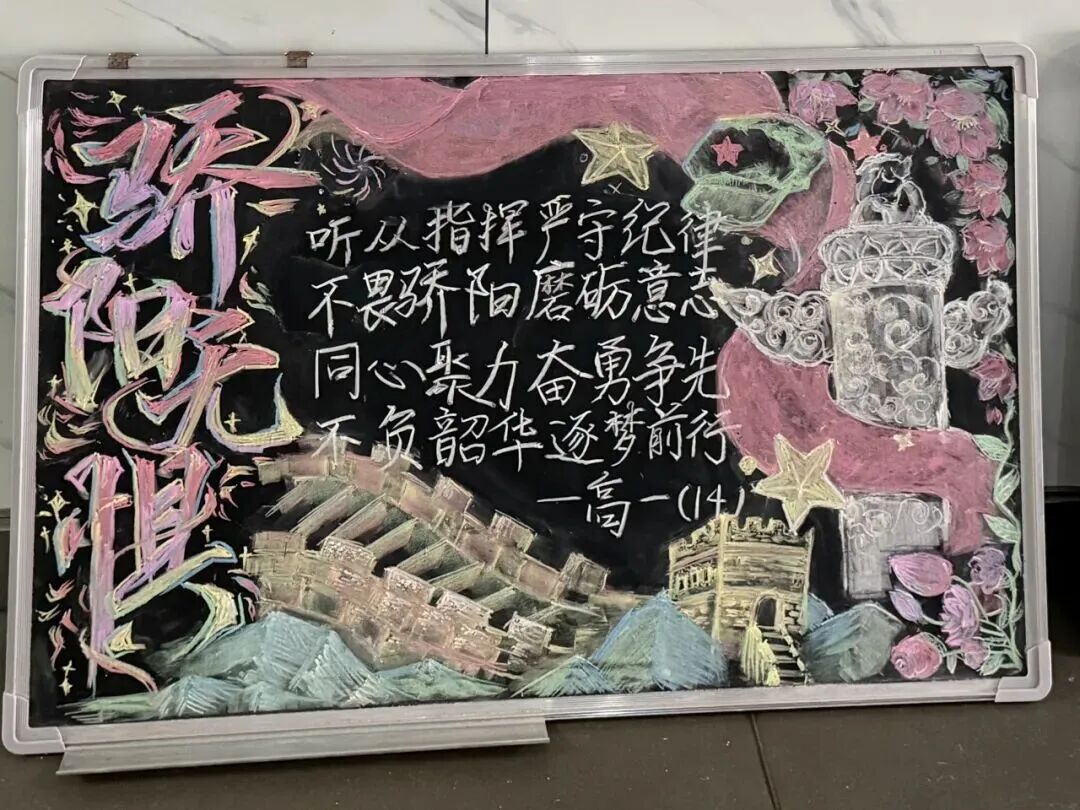 骄阳无惧
听从指挥严守纪律
不畏骄阳磨砺意志
同心聚力奋勇争先
不负韶华逐梦前行
一高一(14)